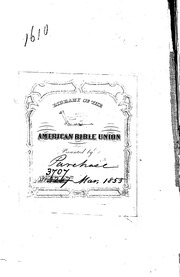 1610
LIBRARY OF THE
AMERICAN BIBLE UNION
Presented by
Purchase
3707
Mar, 1855